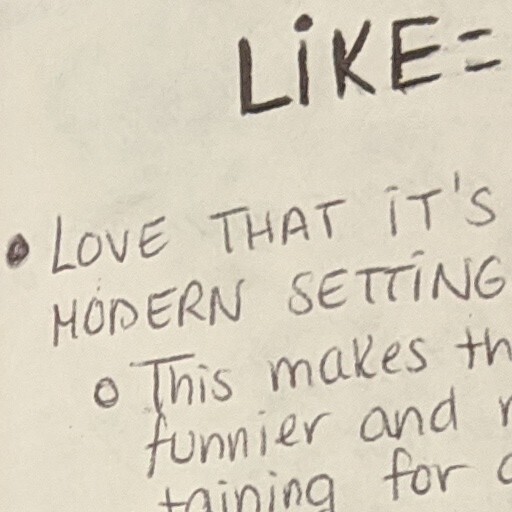 LiKE=
• LOVE THAT iT'S
MODERN SETTiNG
o This makes th
funnier and
taining for